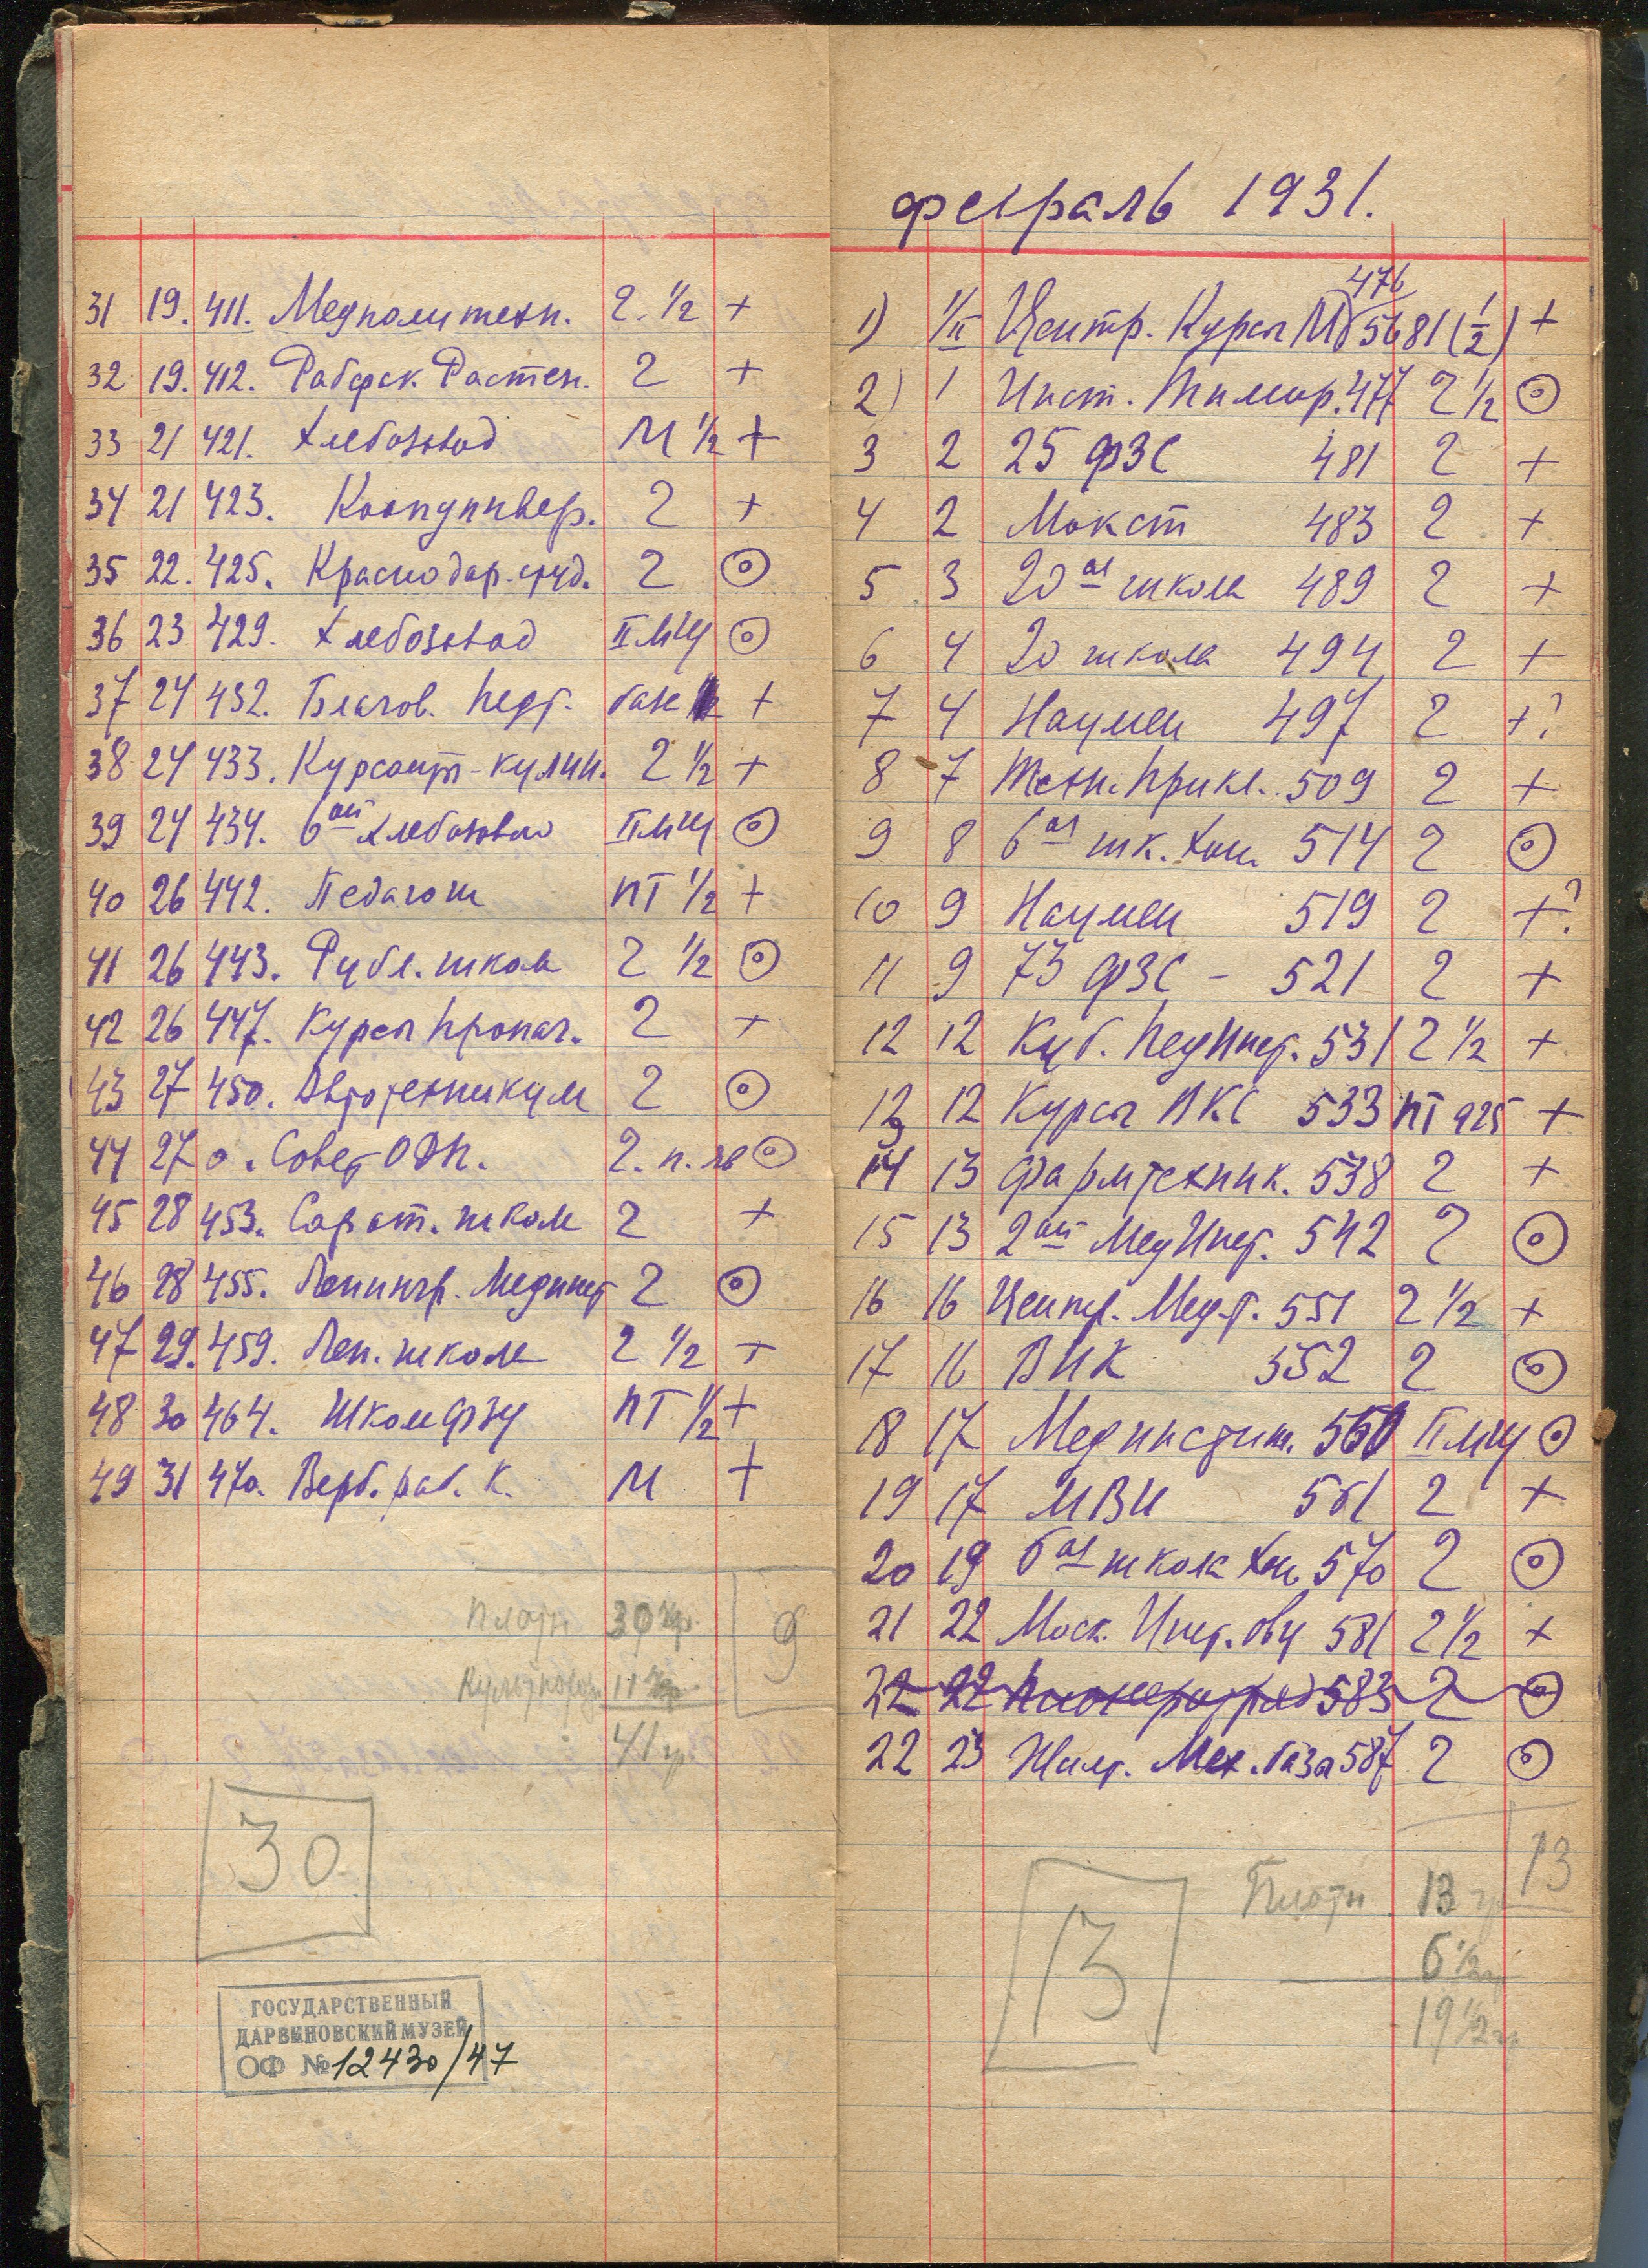 31 19. 411. Медполитехн. 2. 1/2 +
32 19. 412. Рабфак Растен. 2 +
33 21 421. Хлебозавод М 1/2 +
34 21 423. Коопунивер. 2 +
35 22. 425. Краснодар. студ. 2 ⊙
36 23 429. Хлебозавод ⊙
37 24 432. Благов. Педт. +
38 24 433. Курсант-кулин. 2 1/2 +
39 24 434. 6ой Хлебозавод ⊙
40 26 442. Педагоги ПТ 1/2 +
41 26 443. Рубл. школа 2 1/2 ⊙
42 26 447. Курсы Пропаг. 2 +
43 27 450. Автотехникум 2 ⊙
44 27 0. Совет ОДП. 2. п. ⊙
45 28 453. Сарат. школа 2 +
46 28 455. Ленингр. Мединст 2 ⊙
47 29. 459. Лен. школа 2 1/2 +
48 30 464. Школа ФЗУ ПТ 1/2 +
49 31 470. Верб. раб. К. М +
Платн 30 гр.
9
11 гр.
41 гр
30
ГОСУДАРСТВЕННЫЙ
ДАРВИНОВСКИЙ МУЗЕЙ
ОФ № 12430/47
февраль 1931.
476
1) 1/II Центр. Курсы 5681 (1/2) +
2) 1 Инст. Тимир. 477 2 1/2 ⊙
3 2 25 ФЗС 481 2 +
4 2 Мокст 483 2 +
5 3 20ая школа 489 2 +
6 4 20 школа 494 2 +
7 4 Наумен 497 2 +?
8 7 Техн. Прикл. 509 2 +
9 8 6ая шк. Хам. 514 2 ⊙
10 9 Наумен 519 2 +?
11 9 73 ФЗС - 521 2 +
12 12 Куб. ПедИнст. 531 2 1/2 +
13 12 Курсы ВКС 533 ПТ 925 +
14 13 Фармтехник. 538 2 +
15 13 2ой МедИнст. 542 2 ⊙
16 16 Центр. Мед.т. 551 2 1/2 +
17 16 ВИК 552 2 ⊙
18 17 Мединститут. 560 ⊙
19 17 МВИ 561 2 +
20 19 6ая школа Хам 570 2 ⊙
21 22 Моск. Инст. овц 581 2 1/2 +
22 22 Пионеротряд 583 2 ⊙
22 23 Жилт. Мех. база 587 2 ⊙
13
Платн 13 гр
6 1/2 гр
19 1/2 гр
13